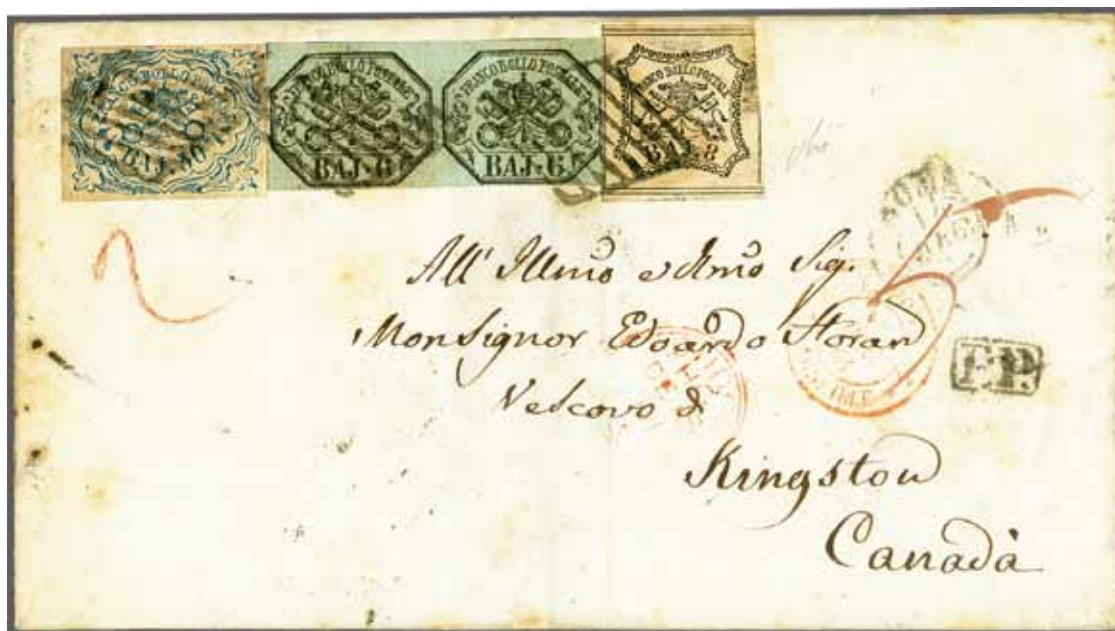 FRANCO BOLLO POSTALE
BAJ. 50
FRANCO BOLLO POSTALE
BAJ. 6
FRANCO BOLLO POSTALE
BAJ. 6
FRANCO BOLLO POSTALE
BAJ. 8
2
ROMA
All' Illmo e Rmo Sig.
Monsignor Edoardo Horan
P.P.
Vescovo di
Kingston
Canadà